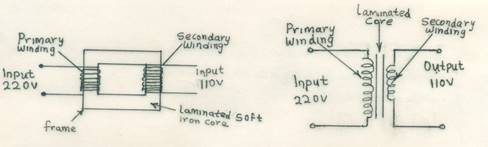 Primary
Winding
Secondary
Winding
Input
220V
Input
110V
frame
Laminated Soft
iron Core
Laminated
Core
Primary
Winding
Secondary
Winding
Input
220V
Output
110V